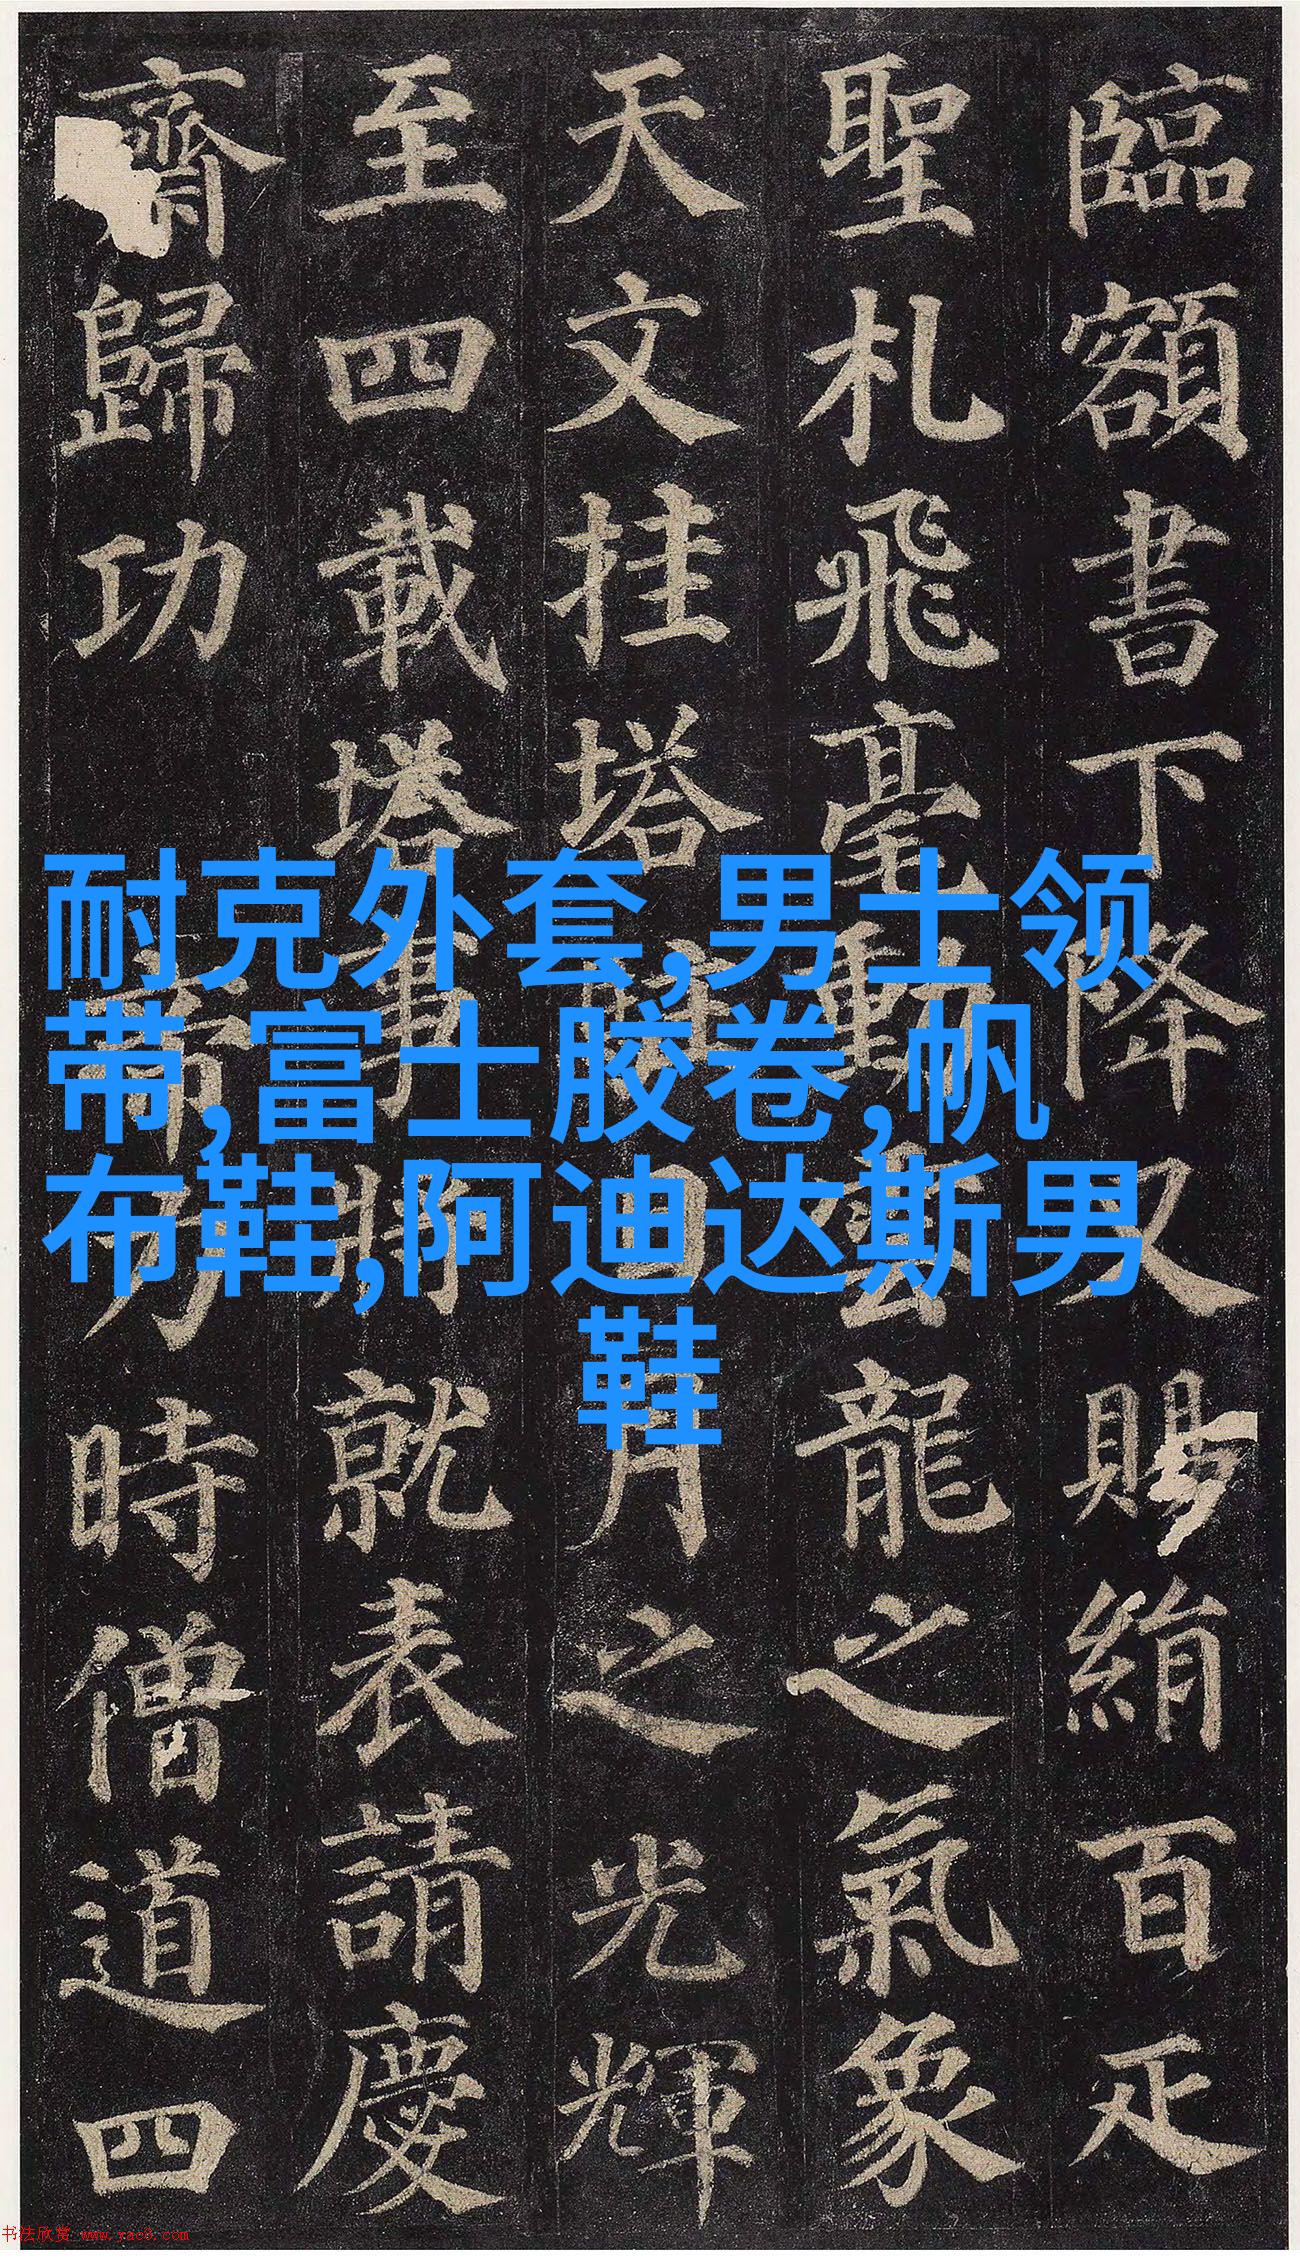 臨額書下降又賜絹百疋
聖札飛毫動雲龍之氣象
天文挂塔駐日月之光輝
至四載塔事將就表請慶
齋歸功 帝力時僧道四
耐克外套,男士领
带,富士胶卷,帆
布鞋,阿迪达斯男
鞋
书法欣赏 www.yac8.com